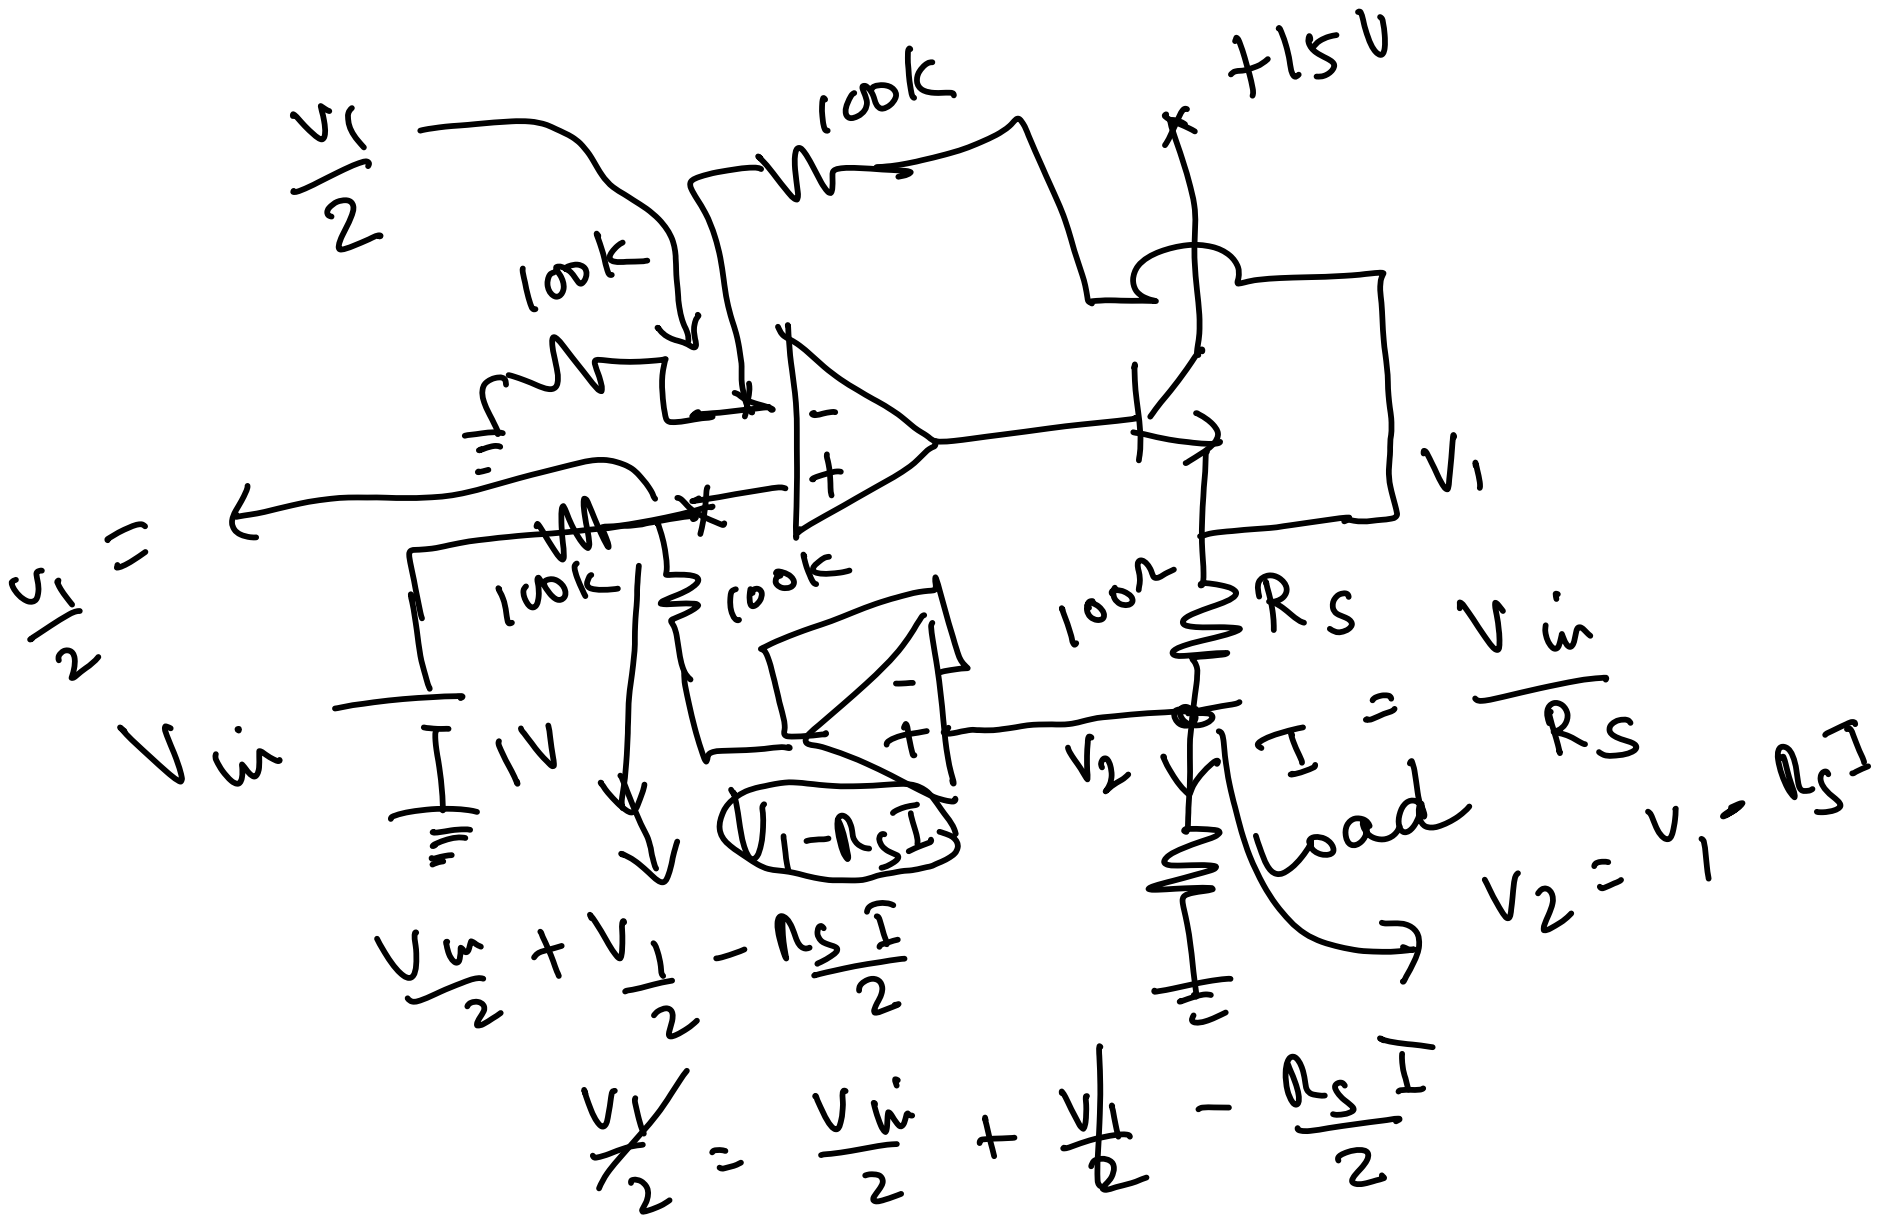 +15V
100K
V1/2
100K
-
+
V1
V1/2 =
100K
100K
100Ω
RS
Vin
1V
-
+
V2
I = Vin/RS
V1 - RSI
Load
V2 = V1 - RSI
Vin/2 + V1/2 - RSI/2
V1/2 = Vin/2 + V1/2 - RSI/2